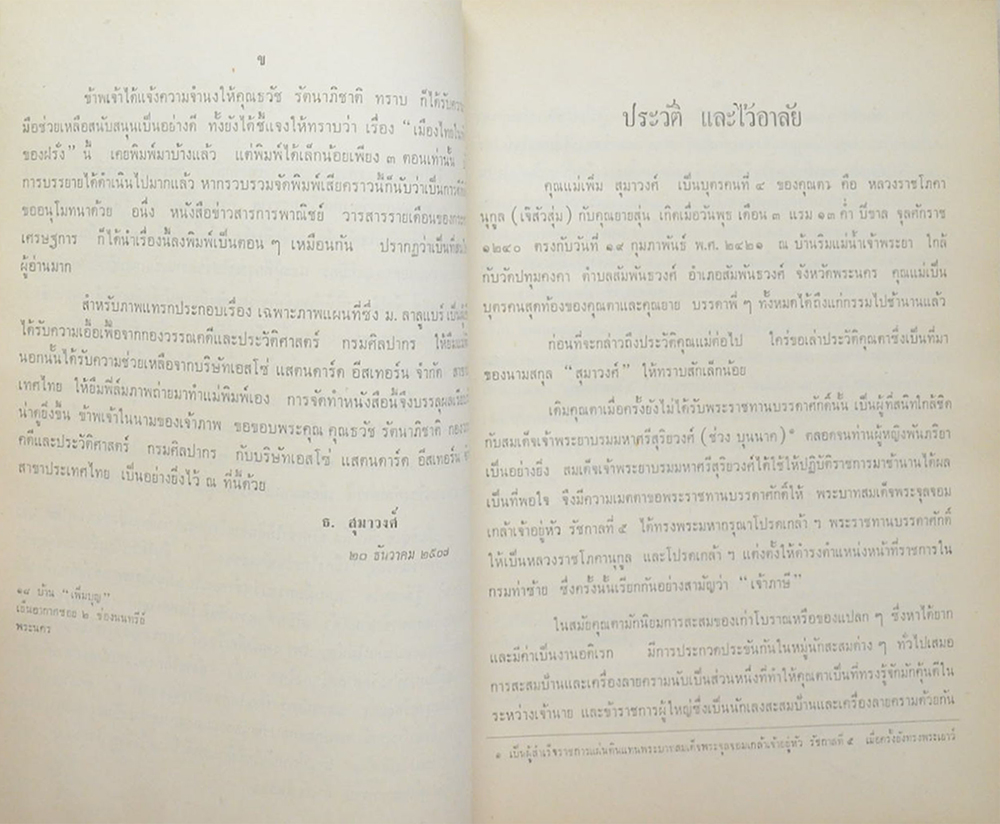 ข
ข้าพเจ้าได้แจ้งความจำนงให้คุณธวัช รัตนาภิชาติ ทราบ ก็ได้รับ
มือช่วยเหลือสนับสนุนเป็นอย่างดี ทั้งยังได้ชี้แจงให้ทราบว่า เรื่อง “เมืองไทยใน
ของฝรั่ง” นี้ เคยพิมพ์มาบ้างแล้ว แต่พิมพ์ได้เล็กน้อยเพียง ๓ ตอนเท่านั้น
การบรรยายได้ดำเนินไปมากแล้ว หากรวบรวมจัดพิมพ์เสียคราวนี้ก็นับว่าเป็นการ
ขออนุโมทนาด้วย อนึ่ง หนังสือข่าวสารการพาณิชย์ วารสารรายเดือนของ
เศรษฐการ ก็ได้นำเรื่องนี้ลงพิมพ์เป็นตอน ๆ เหมือนกัน ปรากฏว่าเป็นที่
ผู้อ่านมาก
สำหรับภาพแทรกประกอบเรื่อง เฉพาะภาพแผนที่ซึ่ง ม. ลาลูแบร์
ได้รับความเอื้อเฟื้อจากกองวรรณคดีและประวัติศาสตร์ กรมศิลปากร ให้ยืม
นอกนั้นได้รับความช่วยเหลือจากบริษัทเอสโซ่ แสตนดาร์ด อีสเทอร์น จำกัด
เทศไทย ให้ยืมฟิล์มภาพถ่ายมาทำแม่พิมพ์เอง การจัดทำหนังสือนี้จึงบรรลุผล
น่าดูยิ่งขึ้น ข้าพเจ้าในนามของเจ้าภาพ ขอขอบพระคุณ คุณธวัช รัตนาภิชาติ กอง
คดีและประวัติศาสตร์ กรมศิลปากร กับบริษัทเอสโซ่ แสตนดาร์ด อีสเทอร์น
สาขาประเทศไทย เป็นอย่างยิ่งไว้ ณ ที่นี้ด้วย
ธ. สุมาวงศ์
๒๐ ธันวาคม ๒๕๐๗
๑๘ บ้าน “เพิ่มบุญ”
เย็นอากาศซอย ๒ ช่องนนทรีย์
พระนคร
ประวัติ และไว้อาลัย
คุณแม่เพิ่ม สุมาวงศ์ เป็นบุตรคนที่ ๔ ของคุณตา คือ หลวงราชโภคา
นุกูล (เจ๊สัวสุ่ม) กับคุณยายสุ่น เกิดเมื่อวันพุธ เดือน ๓ แรม ๑๓ ค่ำ ปีขาล จุลศักราช
๑๒๔๐ ตรงกับวันที่ ๑๙ กุมภาพันธ์ พ.ศ. ๒๔๒๑ ณ บ้านริมแม่น้ำเจ้าพระยา ใกล้
กับวัดปทุมคงคา ตำบลสัมพันธวงศ์ อำเภอสัมพันธวงศ์ จังหวัดพระนคร คุณแม่เป็น
บุตรคนสุดท้องของคุณตาและคุณยาย บรรดาพี่ ๆ ทั้งหมดได้ถึงแก่กรรมไปช้านานแล้ว
ก่อนที่จะกล่าวถึงประวัติคุณแม่ต่อไป ใคร่ขอเล่าประวัติคุณตาซึ่งเป็นที่มา
ของนามสกุล “สุมาวงศ์” ให้ทราบสักเล็กน้อย
เดิมคุณตาเมื่อครั้งยังไม่ได้รับพระราชทานบรรดาศักดิ์นั้น เป็นผู้ที่สนิทใกล้ชิด
กับสมเด็จเจ้าพระยาบรมมหาศรีสุริยวงศ์ (ช่วง บุนนาค)๑ ตลอดจนท่านผู้หญิงพันภริยา
เป็นอย่างยิ่ง สมเด็จเจ้าพระยาบรมมหาศรีสุริยวงศ์ได้ใช้ให้ปฏิบัติราชการมาช้านานได้ผล
เป็นที่พอใจ จึงมีความเมตตาขอพระราชทานบรรดาศักดิ์ให้ พระบาทสมเด็จพระจุลจอม
เกล้าเจ้าอยู่หัว รัชกาลที่ ๕ ได้ทรงพระมหากรุณาโปรดเกล้า ฯ พระราชทานบรรดาศักดิ์
ให้เป็นหลวงราชโภคานุกูล และโปรดเกล้า ฯ แต่งตั้งให้ดำรงตำแหน่งหน้าที่ราชการใน
กรมท่าซ้าย ซึ่งครั้งนั้นเรียกกันอย่างสามัญว่า “เจ้าภาษี”
ในสมัยคุณตามักนิยมการสะสมของเก่าโบราณหรือของแปลก ๆ ซึ่งหาได้ยาก
และมีค่าเป็นงานอดิเรก มีการประกวดประชันกันในหมู่นักสะสมต่าง ๆ ทั่วไปเสมอ
การสะสมป้านและเครื่องลายครามนับเป็นส่วนหนึ่งที่ทำให้คุณตาเป็นที่ทรงรู้จักมักคุ้นดีใน
ระหว่างเจ้านาย และข้าราชการผู้ใหญ่ซึ่งเป็นนักเลงสะสมป้านและเครื่องลายครามด้วยกัน
๑ เป็นผู้สำเร็จราชการแผ่นดินแทนพระบาทสมเด็จพระจุลจอมเกล้าเจ้าอยู่หัว รัชกาลที่ ๕ เมื่อครั้งยังทรงพระเยาว์